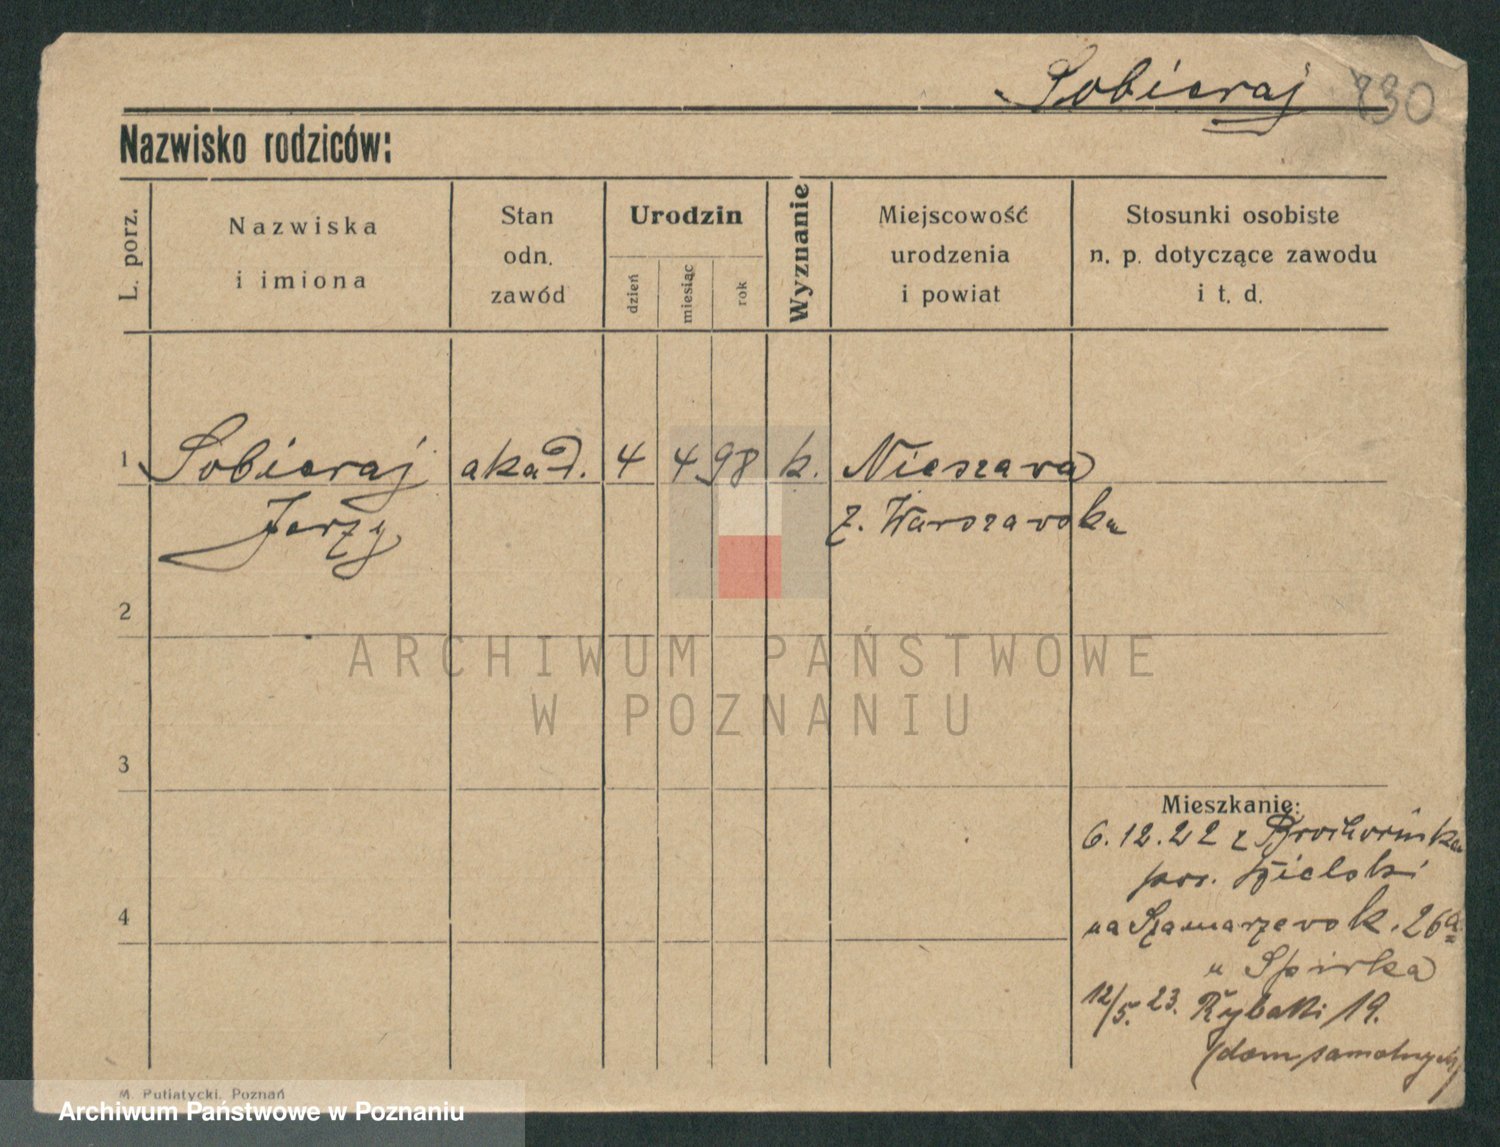 Sobieraj 830
Nazwisko rodziców:
L. porz.
Nazwiska
i imiona
Stan
odn.
zawód
Urodzin
dzień
miesiąc
rok
Wyznanie
Miejscowość
urodzenia
i powiat
Stosunki osobiste
n. p. dotyczące zawodu
i t. d.
1 Sobieraj akad. 4 4 98 k. Nieszava
Jerzy z. Warszavska
2
ARCHIWUM PAŃSTWOWE
W POZNANIU
3
Mieszkanie:
6.12.22 z
pow.
4
na Szamarzevsk. 26a
u Spirka
12/5. 23. Rybaki 19.
(dom samotnych)
M. Putiatycki, Poznań
Archiwum Państwowe w Poznaniu